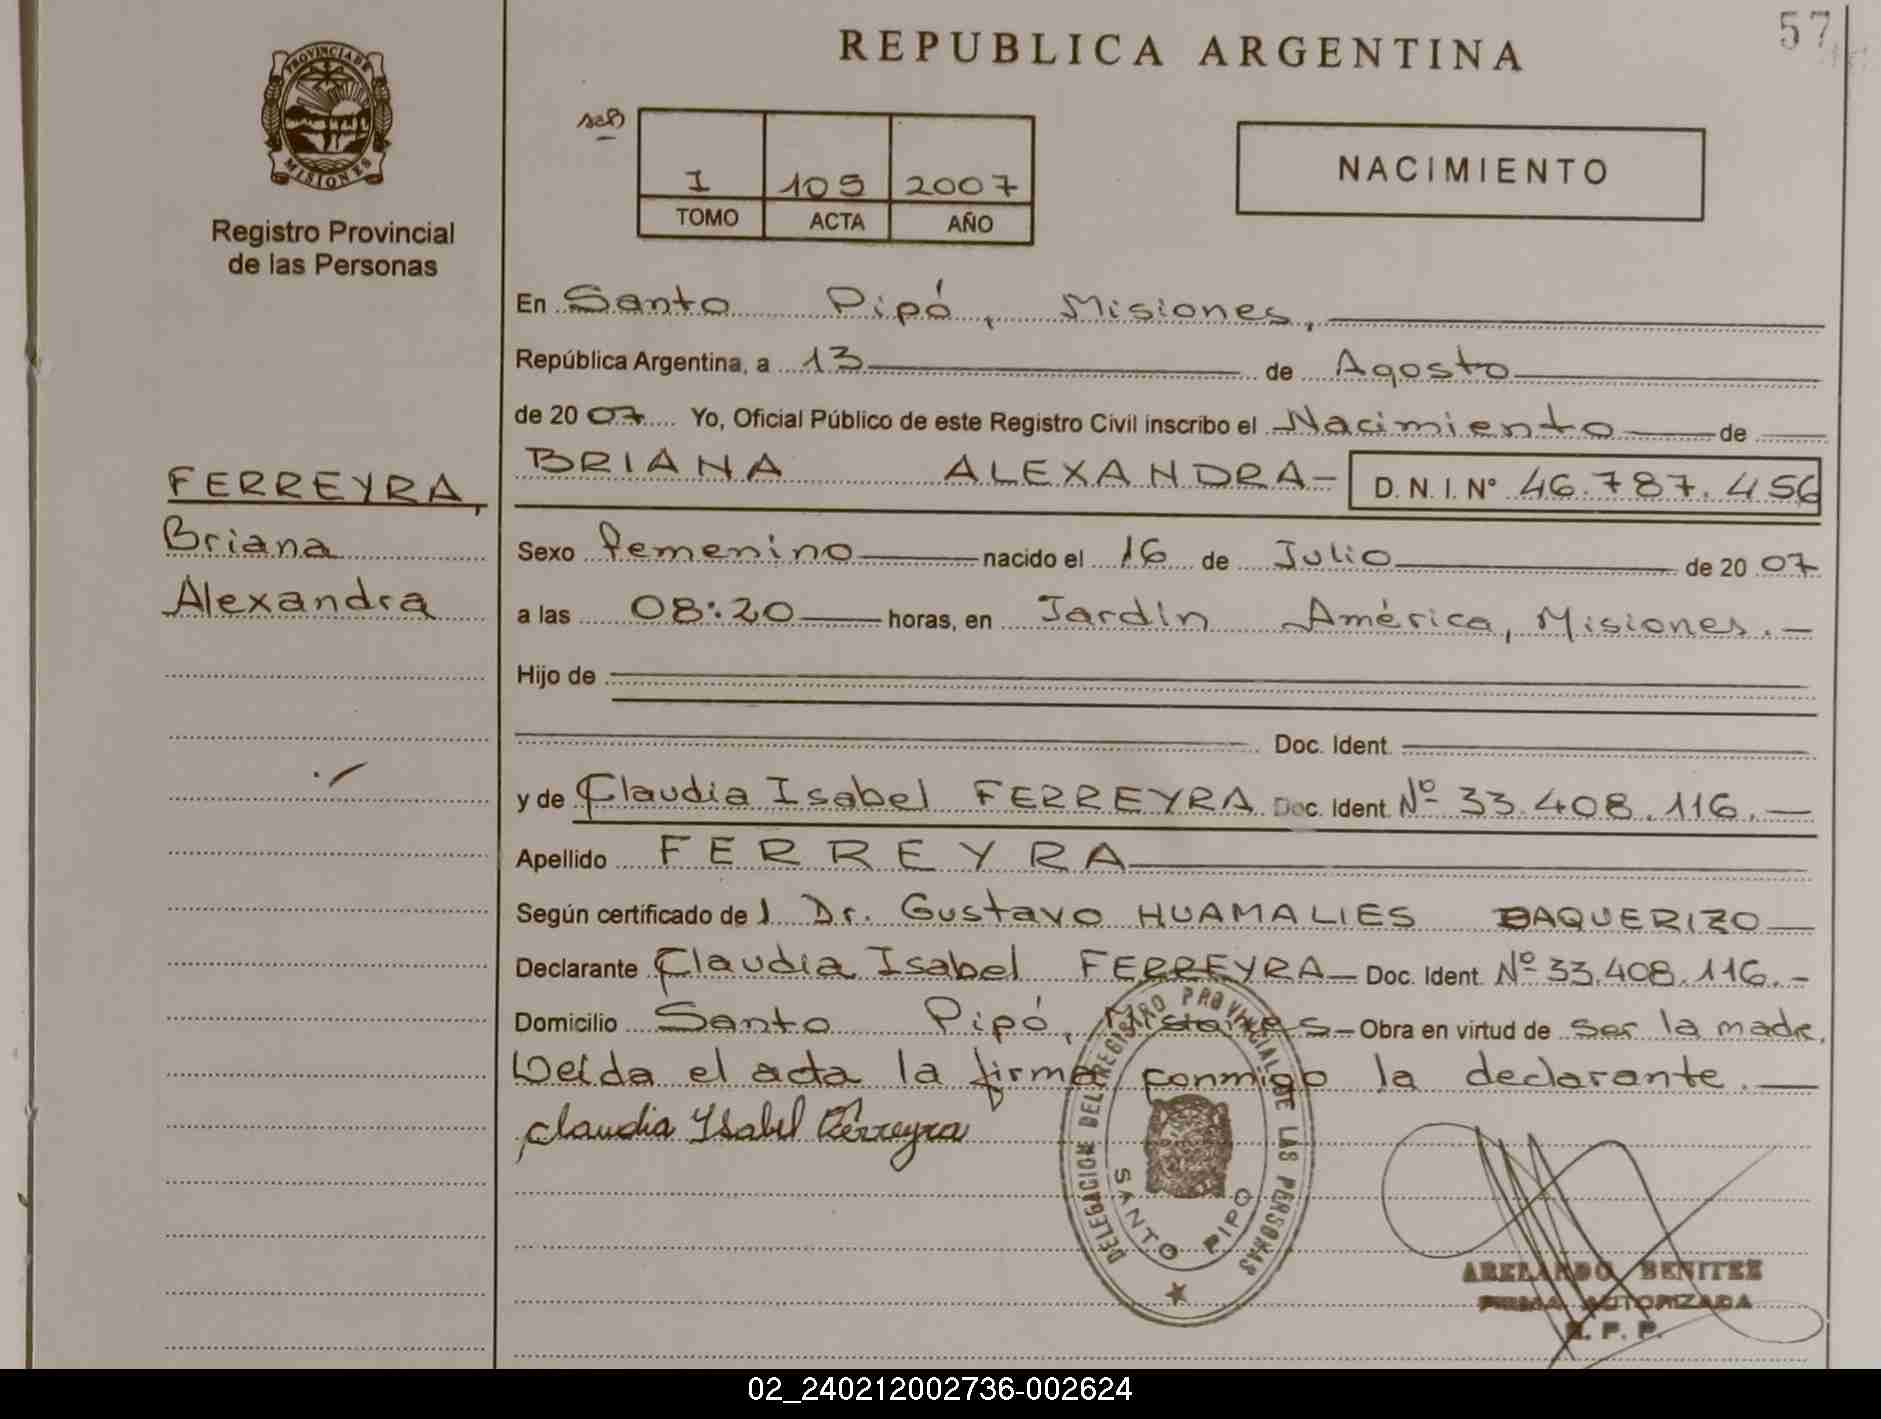 57
REPUBLICA ARGENTINA
PROVINCIA DE
MISIONES
Registro Provincial
de las Personas
I 105 2007
TOMO ACTA AÑO
NACIMIENTO
En Santo Pipó, Misiones,
República Argentina, a 13 de Agosto
de 2007 Yo, Oficial Público de este Registro Civil inscribo el Nacimiento de
BRIANA ALEXANDRA- D. N. I. N° 46.787.456
FERREYRA,
Briana
Alexandra
Sexo femenino nacido el 16 de Julio de 2007
a las 08:20 horas, en Jardín América, Misiones.-
Hijo de
Doc. Ident.
y de Claudia Isabel FERREYRA Doc. Ident. Nº 33.408.116.-
Apellido FERREYRA
Según certificado del Dr. Gustavo HUAMALIES BAQUERIZO
Declarante Claudia Isabel FERREYRA- Doc. Ident. Nº 33.408.116.-
Domicilio Santo Pipó, Misiones- Obra en virtud de ser la madre.
Leída el acta la firma conmigo la declarante.
Claudia Isabel Ferreyra
DELEGACION DEL REGISTRO PROVINCIAL DE LAS PERSONAS
SANTO PIPO
ABELARDO BENITEZ
FIRMA AUTORIZADA
R. P. P.
02_240212002736-002624